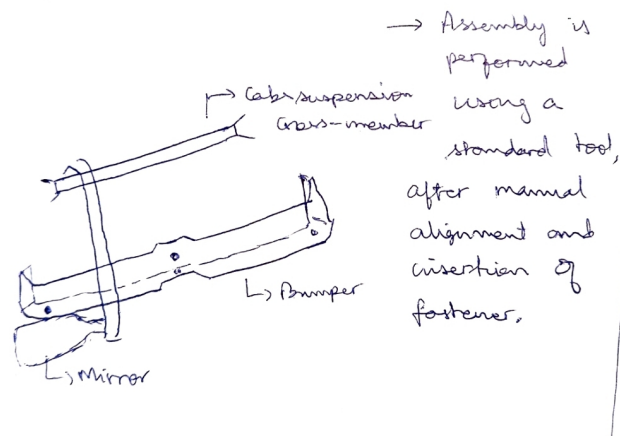 → Assembly is
performed
using a
standard tool,
after manual
alignment and
insertion of
fastener.
→ Cab suspension
Cross-member
↳ Bumper
↳ Mirror